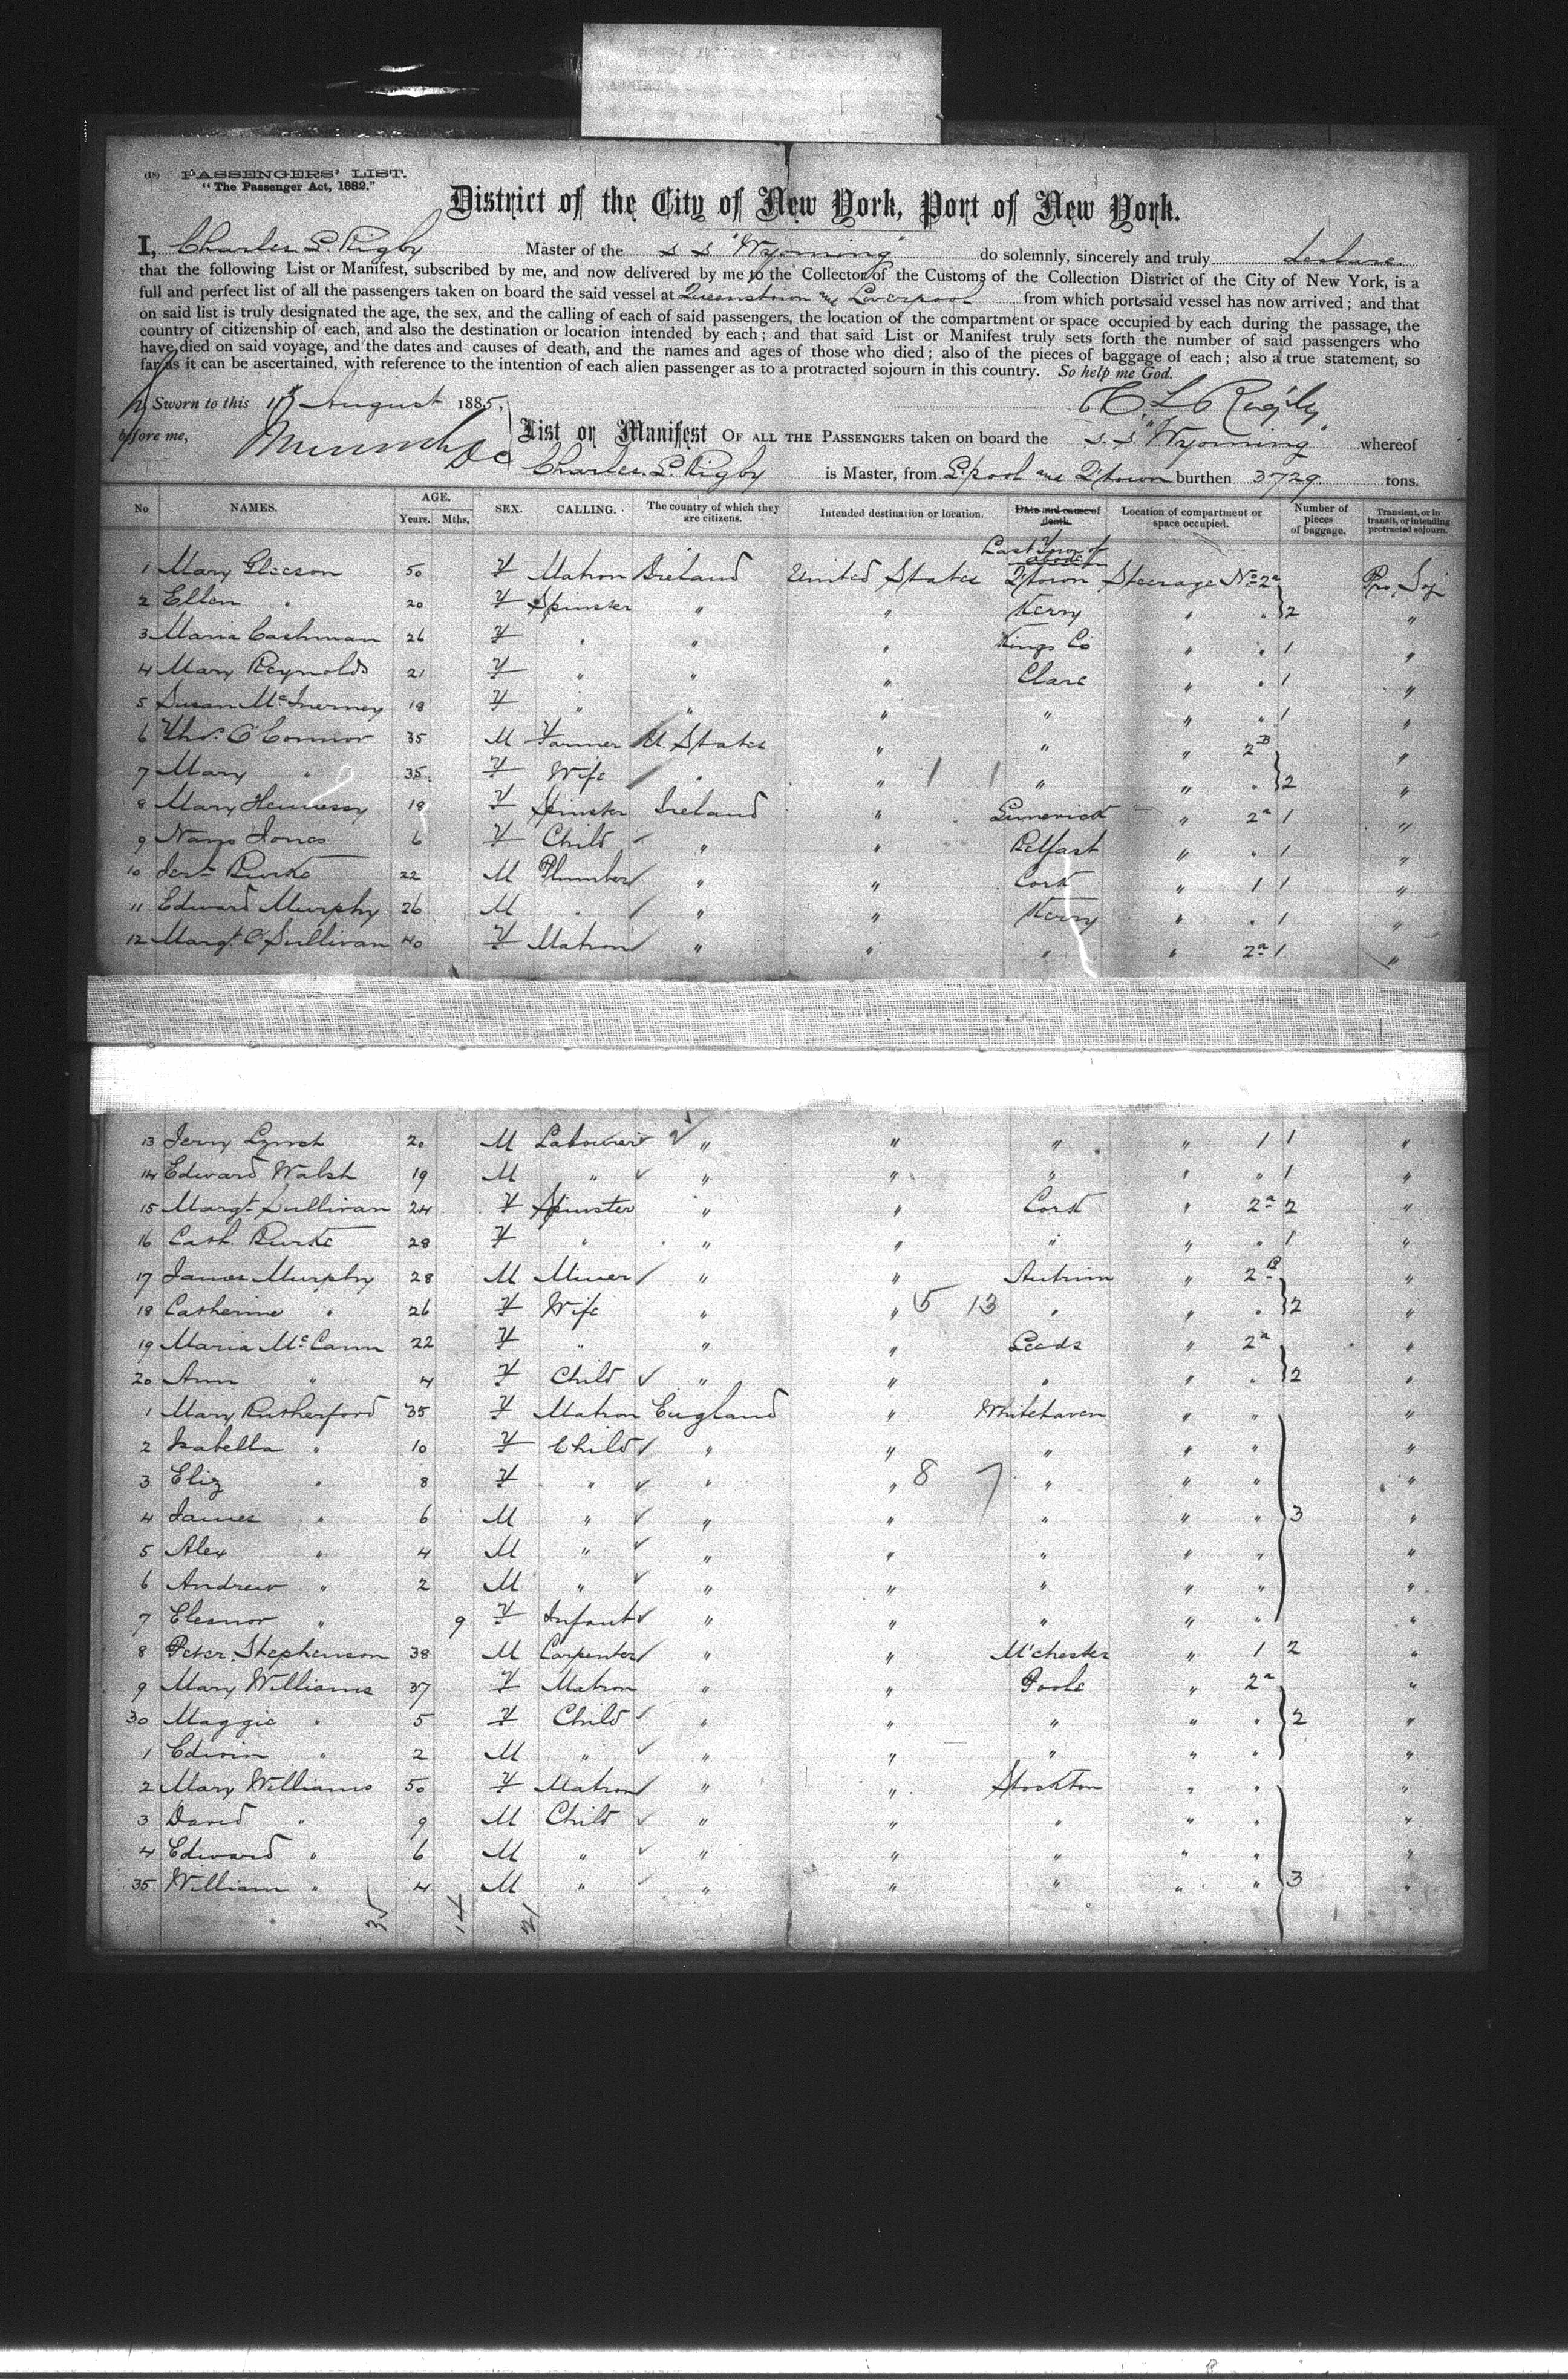 (18) PASSENGERS' LIST.
"The Passenger Act, 1882."
District of the City of New York, Port of New York.
I, Charles L. Rigby Master of the s s "Wyoming" do solemnly, sincerely and truly declare
that the following List or Manifest, subscribed by me, and now delivered by me to the Collector of the Customs of the Collection District of the City of New York, is a
full and perfect list of all the passengers taken on board the said vessel at Queenstown and Liverpool from which port s said vessel has now arrived; and that
on said list is truly designated the age, the sex, and the calling of each of said passengers, the location of the compartment or space occupied by each during the passage, the
country of citizenship of each, and also the destination or location intended by each; and that said List or Manifest truly sets forth the number of said passengers who
have died on said voyage, and the dates and causes of death, and the names and ages of those who died; also of the pieces of baggage of each; also a true statement, so
far as it can be ascertained, with reference to the intention of each alien passenger as to a protracted sojourn in this country. So help me God.
Sworn to this August 1885, C. L. Rigby
before me, List or Manifest OF ALL THE PASSENGERS taken on board the s.s. "Wyoming" whereof
Charles L. Rigby is Master, from L'pool and Q'town burthen 3729 tons.
No NAMES. AGE. Years. Mths. SEX. CALLING. The country of which they are citizens. Intended destination or location. Date and cause of death. Location of compartment or space occupied. Number of pieces of baggage. Transient, or in transit, or intending protracted sojourn.
1 Mary Gleeson 50 F Matron Ireland United States Q'town Steerage No 2a Pro. Soj
2 Ellen " 20 F Spinster " " Kerry " " 2 "
3 Maria Cashman 26 F " " " Kings Co " " 1 "
4 Mary Reynolds 21 F " " " Clare " " 1 "
5 Susan McInerney 18 F " " " " " " 1 "
6 Thos. O'Connor 35 M Farmer U. States " " " 2B "
7 Mary " 35 F Wife " " 1 1 " " " 2 "
8 Mary Hennessy 18 F Spinster Ireland " Limerick " 2a 1 "
9 Jones 6 F Child " " Belfast " " 1 "
10 Burke 22 M Plumber " " Cork " 1 1 "
11 Edward Murphy 26 M " " " Kerry " " 1 "
12 Margt. O'Sullivan 40 F Matron " " " " 2a 1 "
13 Jerry Lynch 20 M Labourer " " " " 1 1 "
14 Edward Walsh 19 M " " " " " " 1 "
15 Margt. Sullivan 24 F Spinster " " Cork " 2a 2 "
16 Cath. Burke 28 F " " " " " " 1 "
17 James Murphy 28 M Miner " " Antrim " 2B "
18 Catherine " 26 F Wife " " 5 13 " " " 2 "
19 Maria McCann 22 F " " " Leeds " 2a "
20 Ann " 4 F Child " " " " " 2 "
1 Mary Rutherford 35 F Matron England " Whitehaven " " "
2 Isabella " 10 F Child " " " " " "
3 Eliz " 8 F " " " 8 7 " " " "
4 James " 6 M " " " " " " 3 "
5 Alex " 4 M " " " " " " "
6 Andrew " 2 M " " " " " " "
7 Eleanor " 9 F Infant " " " " " "
8 Peter Stephenson 38 M Carpenter " " M'chester " 1 2 "
9 Mary Williams 37 F Matron " " Poole " 2a "
30 Maggie " 5 F Child " " " " " 2 "
1 Edwin " 2 M " " " " " " "
2 Mary Williams 50 F Matron " " Stockton " " "
3 David " 9 M Child " " " " " "
4 Edward " 6 M " " " " " " "
35 William " 4 M " " " " " " 3 "
35 14 21